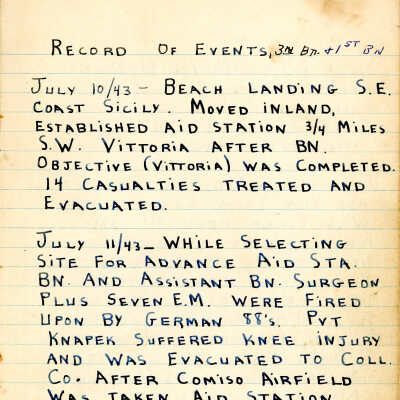 RECORD OF EVENTS, 3RD BN. + 1ST BN
JULY 10/43 - BEACH LANDING S.E.
COAST SICILY. MOVED INLAND,
ESTABLISHED AID STATION 3/4 MILES
S.W. VITTORIA AFTER BN.
OBJECTIVE (VITTORIA) WAS COMPLETED.
14 CASUALTIES TREATED AND
EVACUATED.
JULY 11/43 - WHILE SELECTING
SITE FOR ADVANCE AID STA.
BN. AND ASSISTANT BN. SURGEON
PLUS SEVEN E.M. WERE FIRED
UPON BY GERMAN 88's. PVT
KNAPEK SUFFERED KNEE INJURY
AND WAS EVACUATED TO COLL.
CO. AFTER COMISO AIRFIELD
WAS TAKEN AID STATION